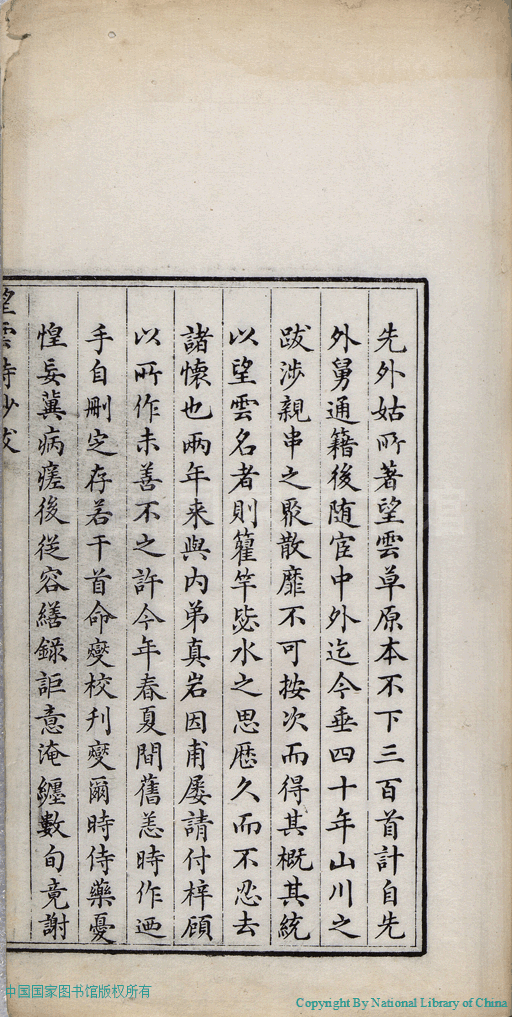 先外姑所著望雲草原本不下三百首計自先
外舅通籍後随宦中外迄今垂四十年山川之
跋涉親串之聚散靡不可按次而得其概其統
以望雲名者則籊竿毖水之思歷久而不忍去
諸懷也兩年来與内弟真岩因甫屡請付梓顧
以所作未善不之許今年春夏間舊恙時作迺
手自刪定存若干首命奱校刋奱爾時侍藥憂
惶妄冀病瘥後從容繕錄詎意淹纏數旬竟謝
望雲詩鈔跋
中国国家图书馆版权所有
Copyright By National Library of China